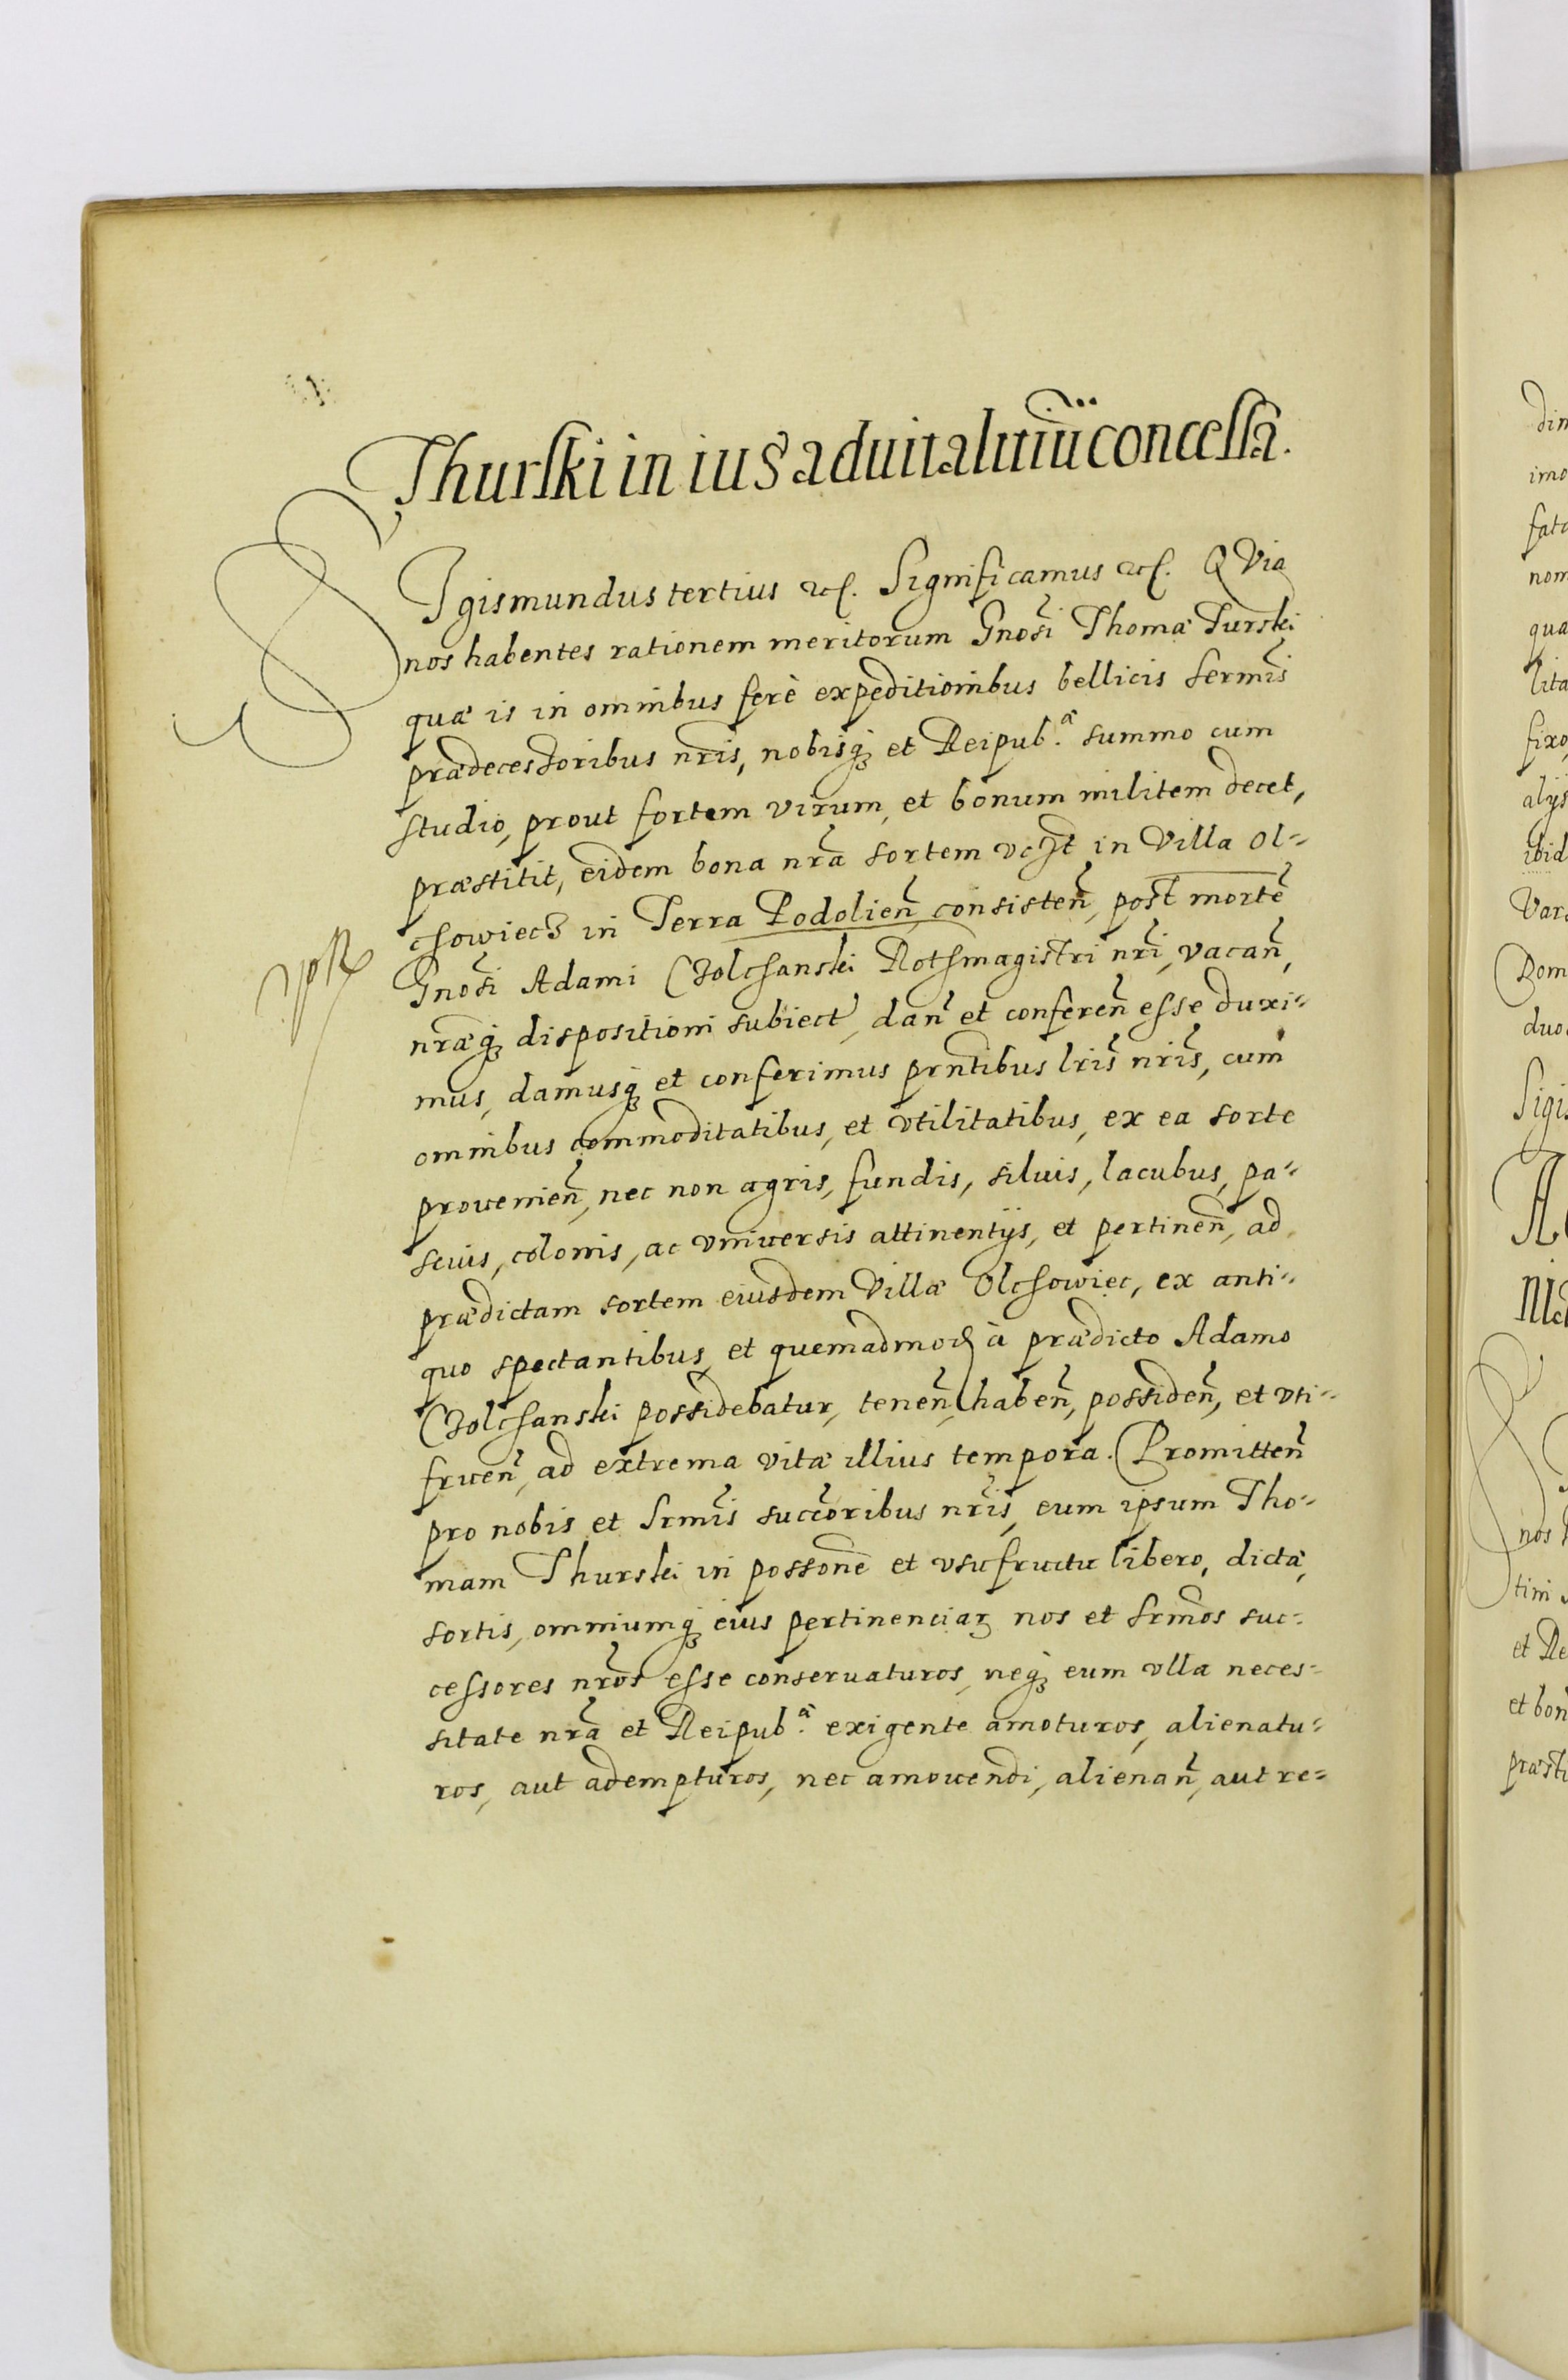 Thurski in ius aduitalitiũ concessa.
SIgismundus tertius etc. Significamus etc. QVia
nos habentes rationem meritorum Gnosi Thomæ Turski
quæ is in omnibus ferè expeditionibus bellicis sermis
prædecessoribus nris, nobisq; et Reipub.ᵃ summo cum
studio, prout fortem virum, et bonum militem decet,
præstitit, eidem bona nra sortem vcẑt in Villa Ol=
csowiecz in Terra Podolieñ consisteñ, post mortẽ
Gnosi Adami Czolcsanski Rotsmagistri nri, vacañ,
nræq; dispositioni subiect, dañ et confereñ esse duxi=
mus, damusq; et conferimus prntibus lris nris, cum
omnibus commoditatibus, et vtilitatibus, ex ea sorte
prouenieñ, nec non agris, fundis, siluis, lacubus, pa=
scuis, colonis, ac vniuersis attinentijs, et pertineñ, ad
prædictam sortem eiusdem Villæ Olcsowiec, ex anti=
quo spectantibus, et quemadmod à prædicto Adamo
Czolcsanski possidebatur, teneñ, habeñ, possideñ, et vti=
frueñ, ad extrema vitæ illius tempora. Promitteñ
pro nobis et Srmis succoribus nris, eum ipsum Tho=
mam Thurski in possone et vsufructu libero, dictæ,
sortis, omniumq; eius pertinenciar nos et Srmos suc=
cessores nros esse conseruaturos, neq; eum vlla neces=
sitate nra et Reipub.ᵃ exigente amoturos, alienatu=
ros, aut adempturos, nec amouendi, alienañ, aut re=